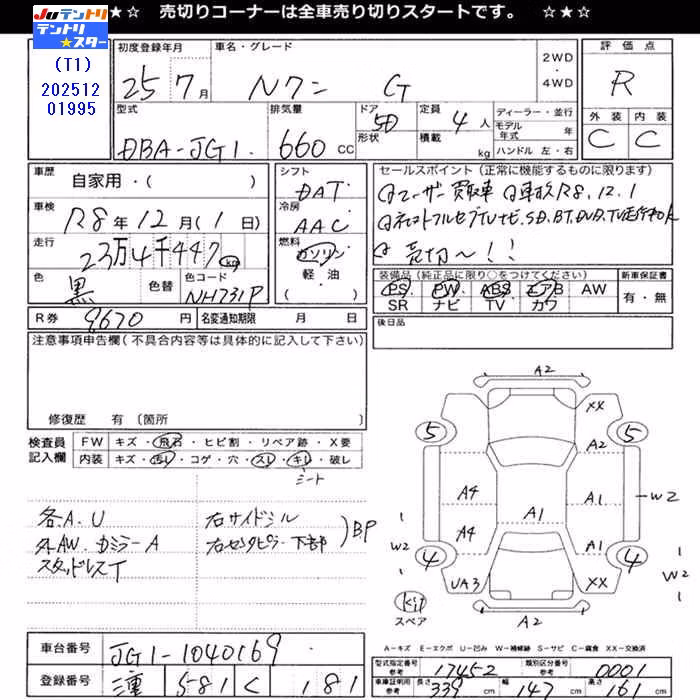 ★☆ 売切りコーナーは全車売り切りスタートです。 ☆★☆
JUテントリ
テントリ★スター
(T1)
202512
01995
初度登録年月 車名・グレード 評価点
25年7月 Nワン G 2WD・4WD R
型式 排気量 ドア 形状 定員 積載 ディーラー・並行 外装 内装
DBA-JG1 660cc 5D 4人 kg モデル年式 年 C C
ハンドル 左・右
車歴 自家用・( )
シフト DAT
セールスポイント(正常に機能するものに限ります)
車検 R8年12月(1日)
冷房 AAC
☑ユーザー買取車 ☑車検R8.12.1
走行 23万4千447km
燃料 ガソリン・軽油・( )
☑売切〜!!
色 黒 色替 色コード NH731P
装備品(純正品に限り○をつけてください) 新車保証書
PS PW ABS エアB AW 有・無
SR ナビ TV カワ
R券 9670円 名変通知期限 月 日
後日品
注意事項申告欄(不具合内容等は具体的に記入して下さい)
修復歴 有 〔箇所
検査員記入欄 FW キズ・飛石・ヒビ割・リペア跡・X要
内装 キズ・汚レ・コゲ・穴・スレ・キレ・破レ
シート
各A.U 右サイドシル
外AW.カミラーA 右センタピラー下部 )BP
スタッドレスT
A2
XX
5 5
A2
A4 A1 W2
A1
A4 A1
W2 4 4 W2
UA3 XX
kit
スペア A2
A-キズ E-エクボ U-凹み W-補修跡 S-サビ C-腐食 XX-交換済
車台番号 JG1-1040169
登録番号 三重 581 く 181
型式指定番号 参考 17452 類別区分番号 参考 0001
車庫証明用 参考 長さ 339cm 幅 147cm 高さ 161cm